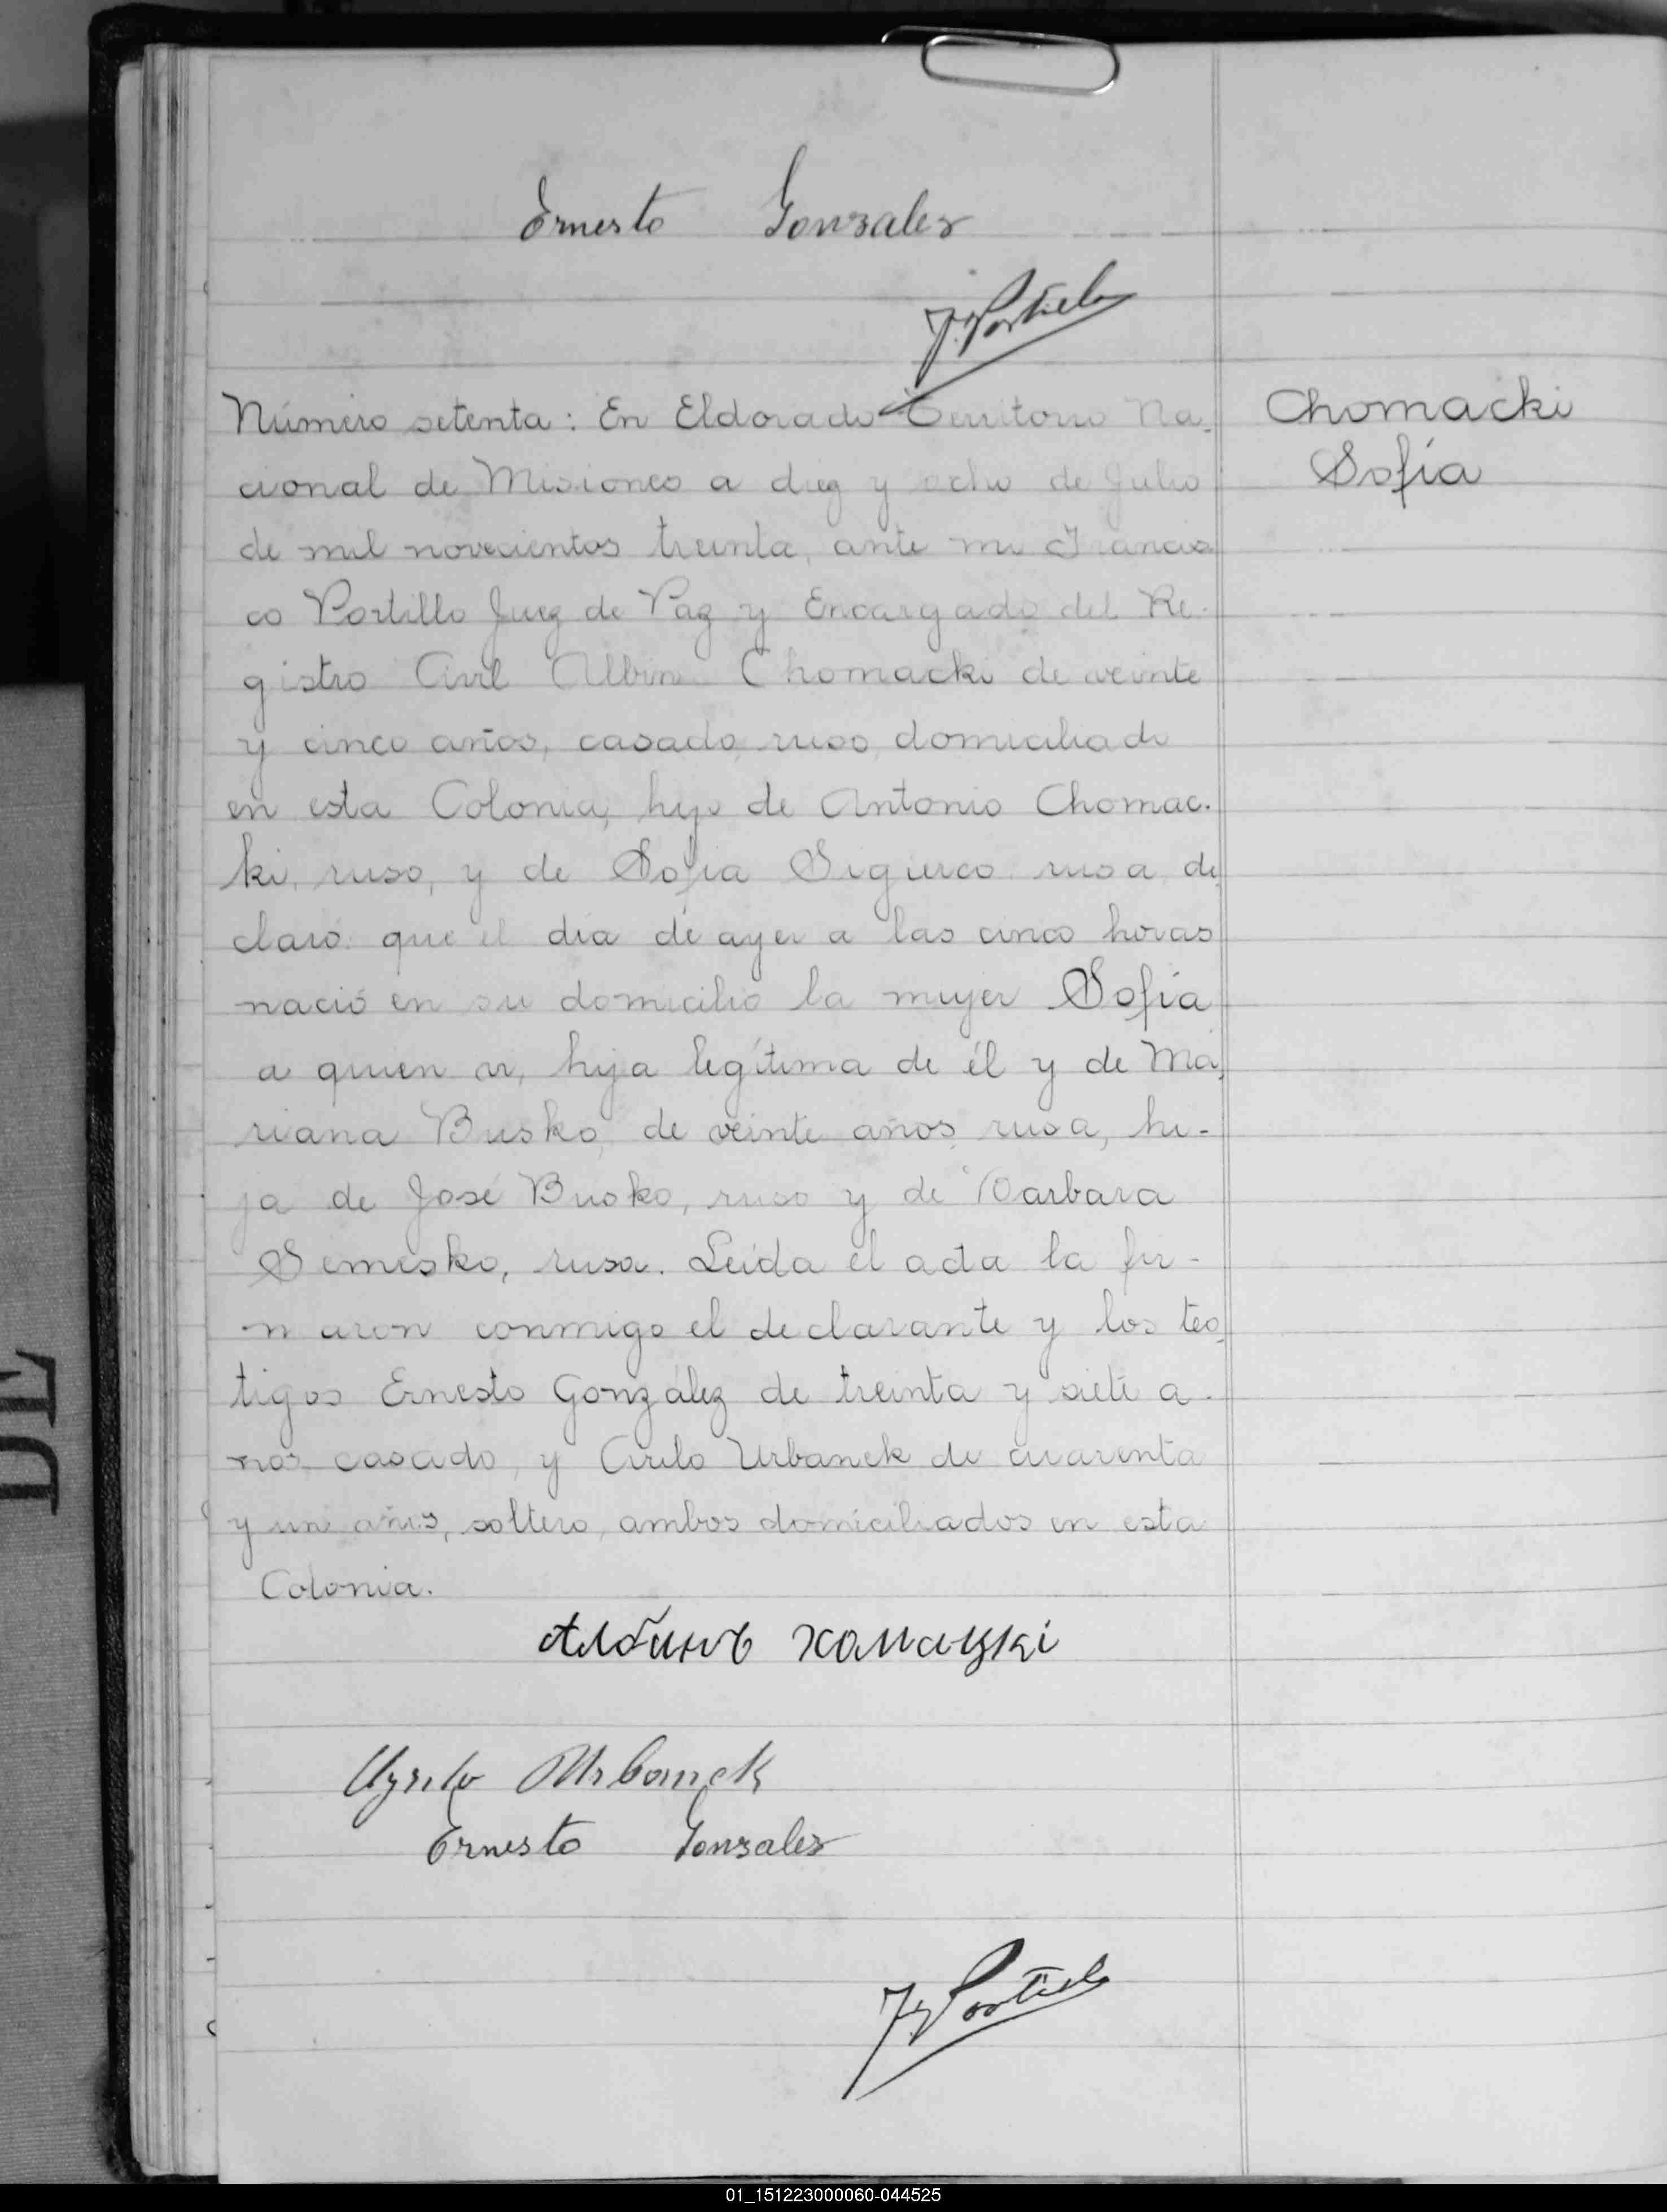 Ernesto Gonzales
J. Portillo
Número setenta: En Eldorado Territorio Na-
cional de Misiones a diez y ocho de Julio
de mil novecientos treinta, ante mi Francis
co Portillo Juez de Paz y Encargado del Re-
gistro Civil Albin Chomacki de veinte
y cinco años, casado, ruso, domiciliado
en esta Colonia, hijo de Antonio Chomac-
ki, ruso, y de Sofia Sigierco rusa de
claró: que el dia de ayer a las cinco horas
nació en su domicilio la mujer Sofía
a quien vi, hija legítima de él y de Ma-
riana Busko, de veinte años rusa, hi-
ja de José Busko, ruso y de Barbara
Semesko, rusa. Leida el acta la fir-
maron conmigo el declarante y los tes-
tigos Ernesto González de treinta y siete a-
nos casado, y Cirilo Urbanek de cuarenta
y un años, soltero, ambos domiciliados en esta
Colonia.
Албинъ хомацкі
Cyrilo Urbanek
Ernesto Gonzales
Portillo
Chomacki
Sofía
DE
01_151223000060-044525